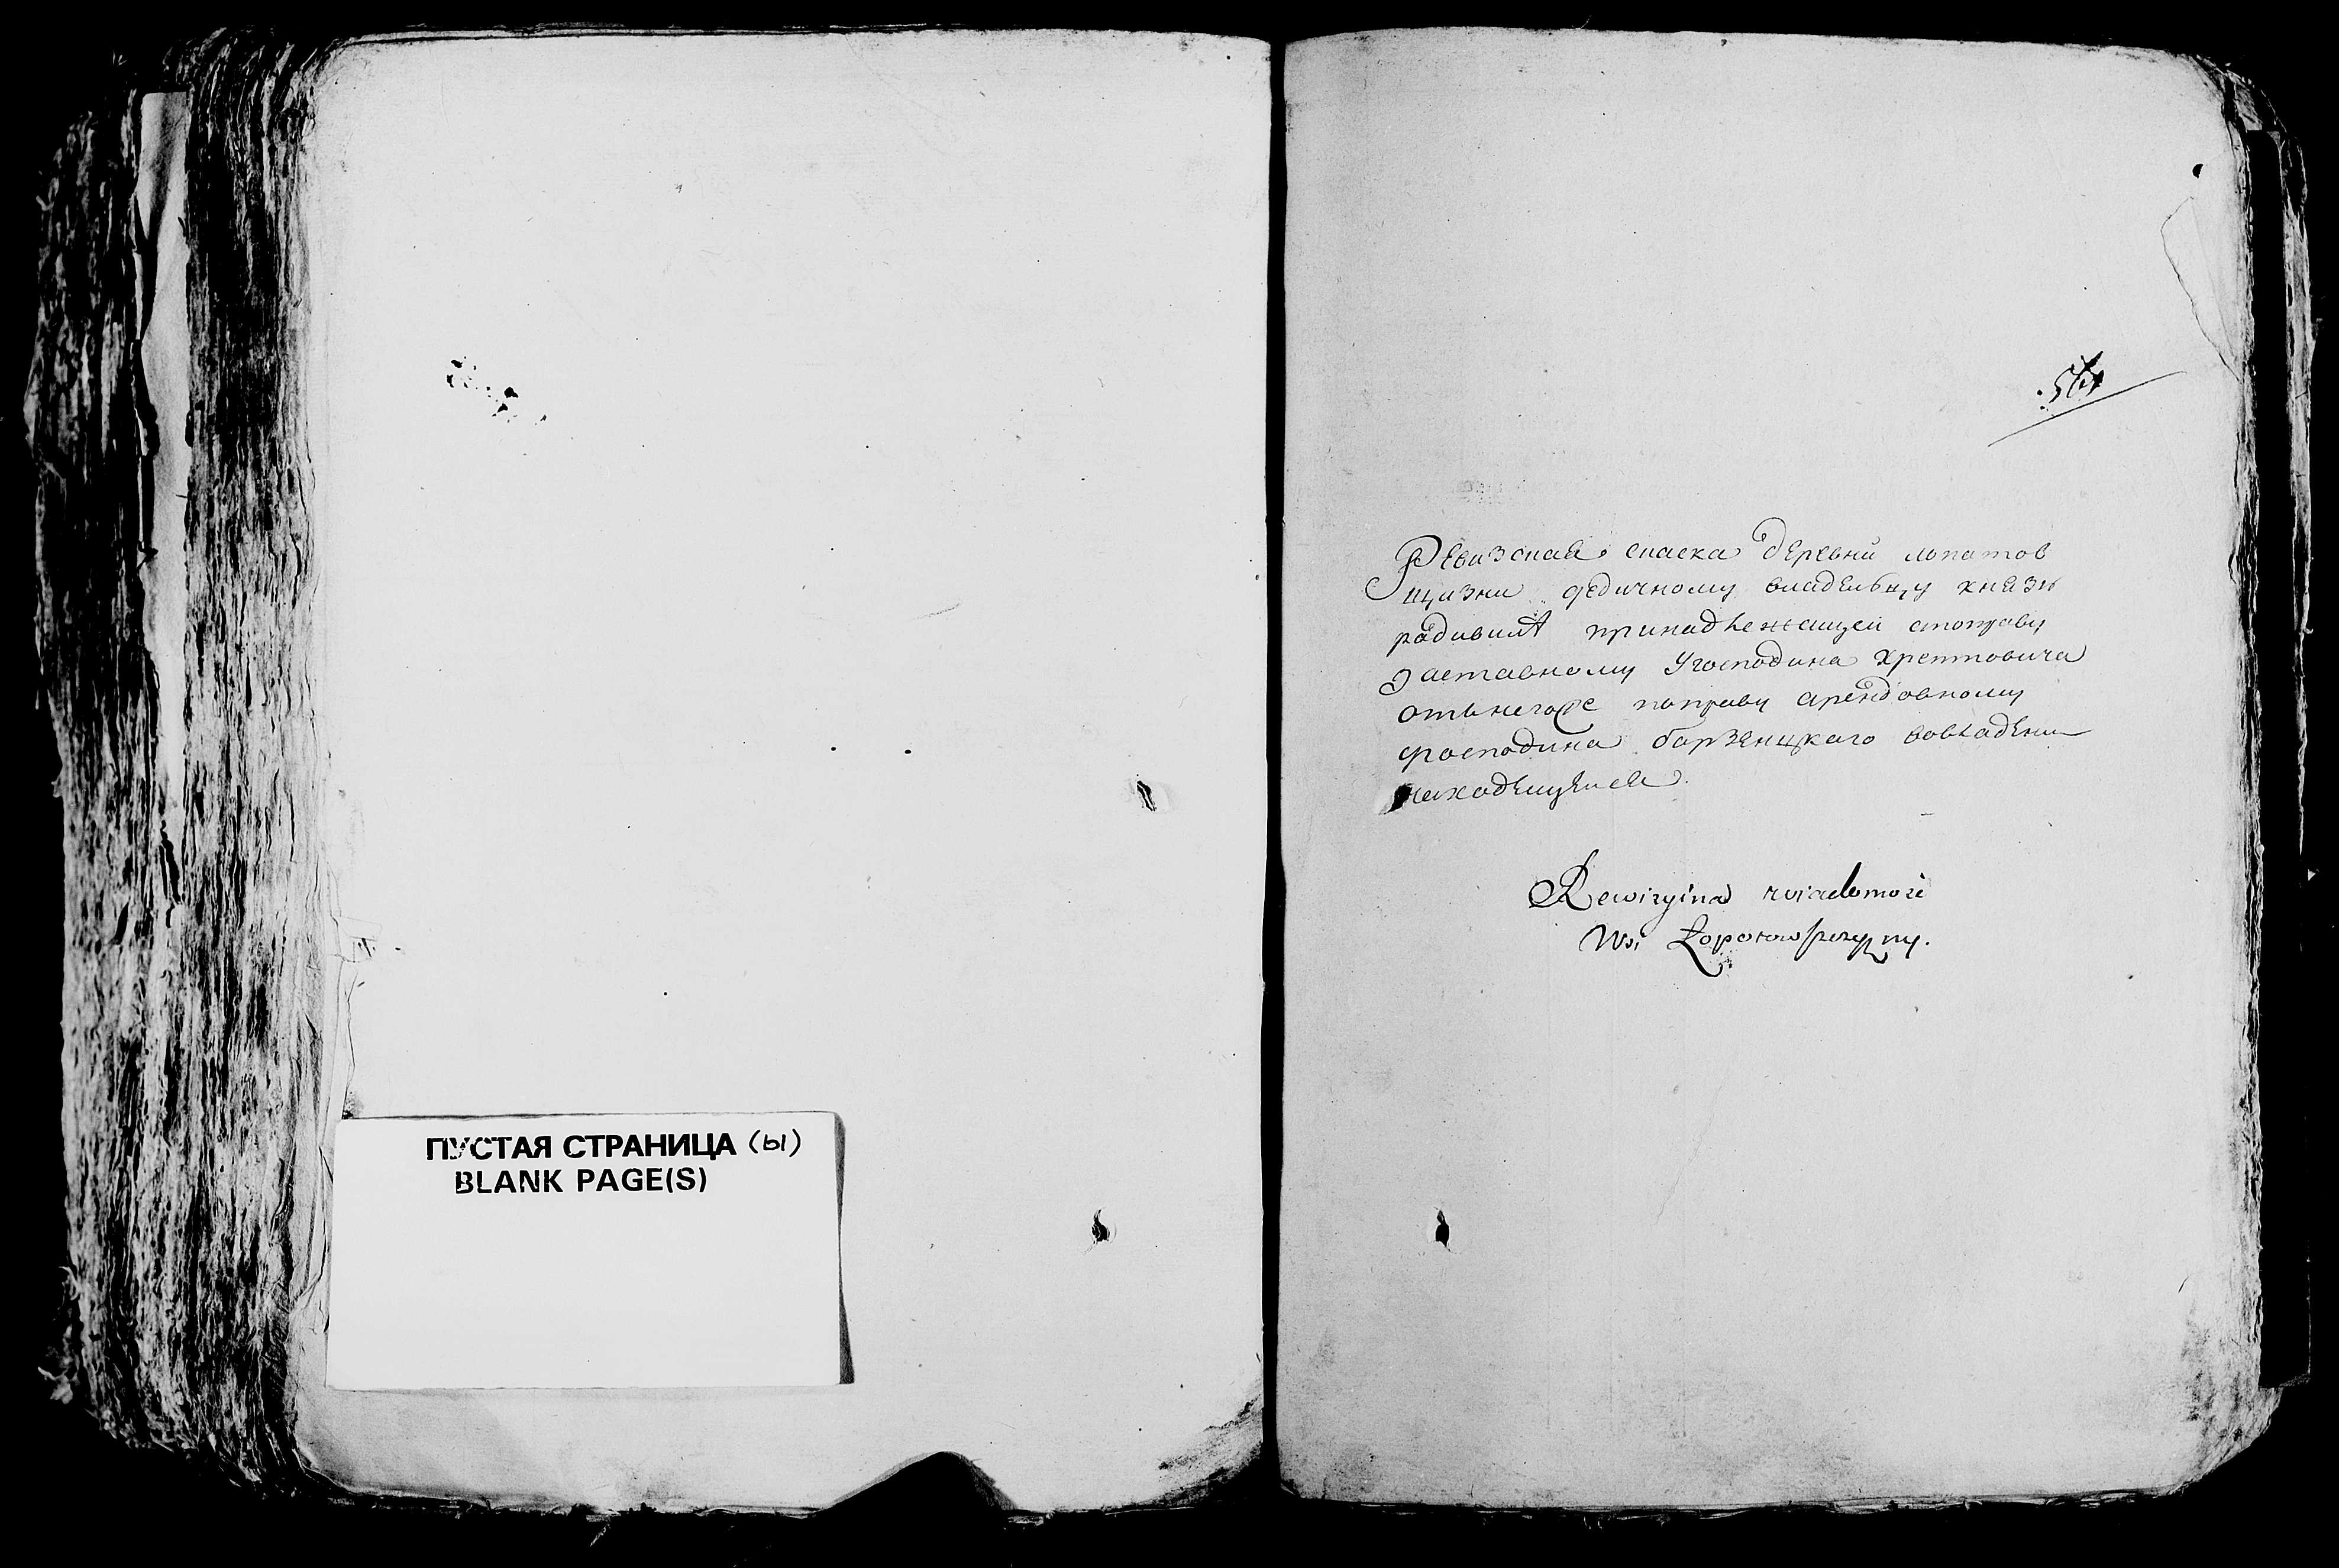 ПУСТАЯ СТРАНИЦА (ы)
BLANK PAGE(S)
Ревизская скаска деревни лопатов
щизни дедичному владельцу князю
радивилу принадлежащей апоправу
заставному Угосподина хрептовича
отънегоже поправу арендовному
господина борзенцкаго вовладени
находящейся
Rewizyina wiadomość
Wsi Łopotowszczyzny.